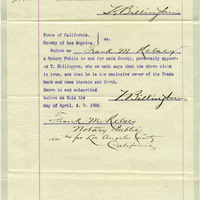 T. Billington
State of California, } ss.
County of Los Angeles.
Before me Frank M. Kelsey
a Notary Public in and for said County, personally appeared
T. Billington, who on oath says that the above claim
is true, and that he is the exclusive owner of the Trade
Mark and name therein set forth.
Sworn to and subscribed
before me this the
day of April, A. D. 1893.
T. Billington
Frank M. Kelsey
Notary Public
in and for Los Angeles County
California.